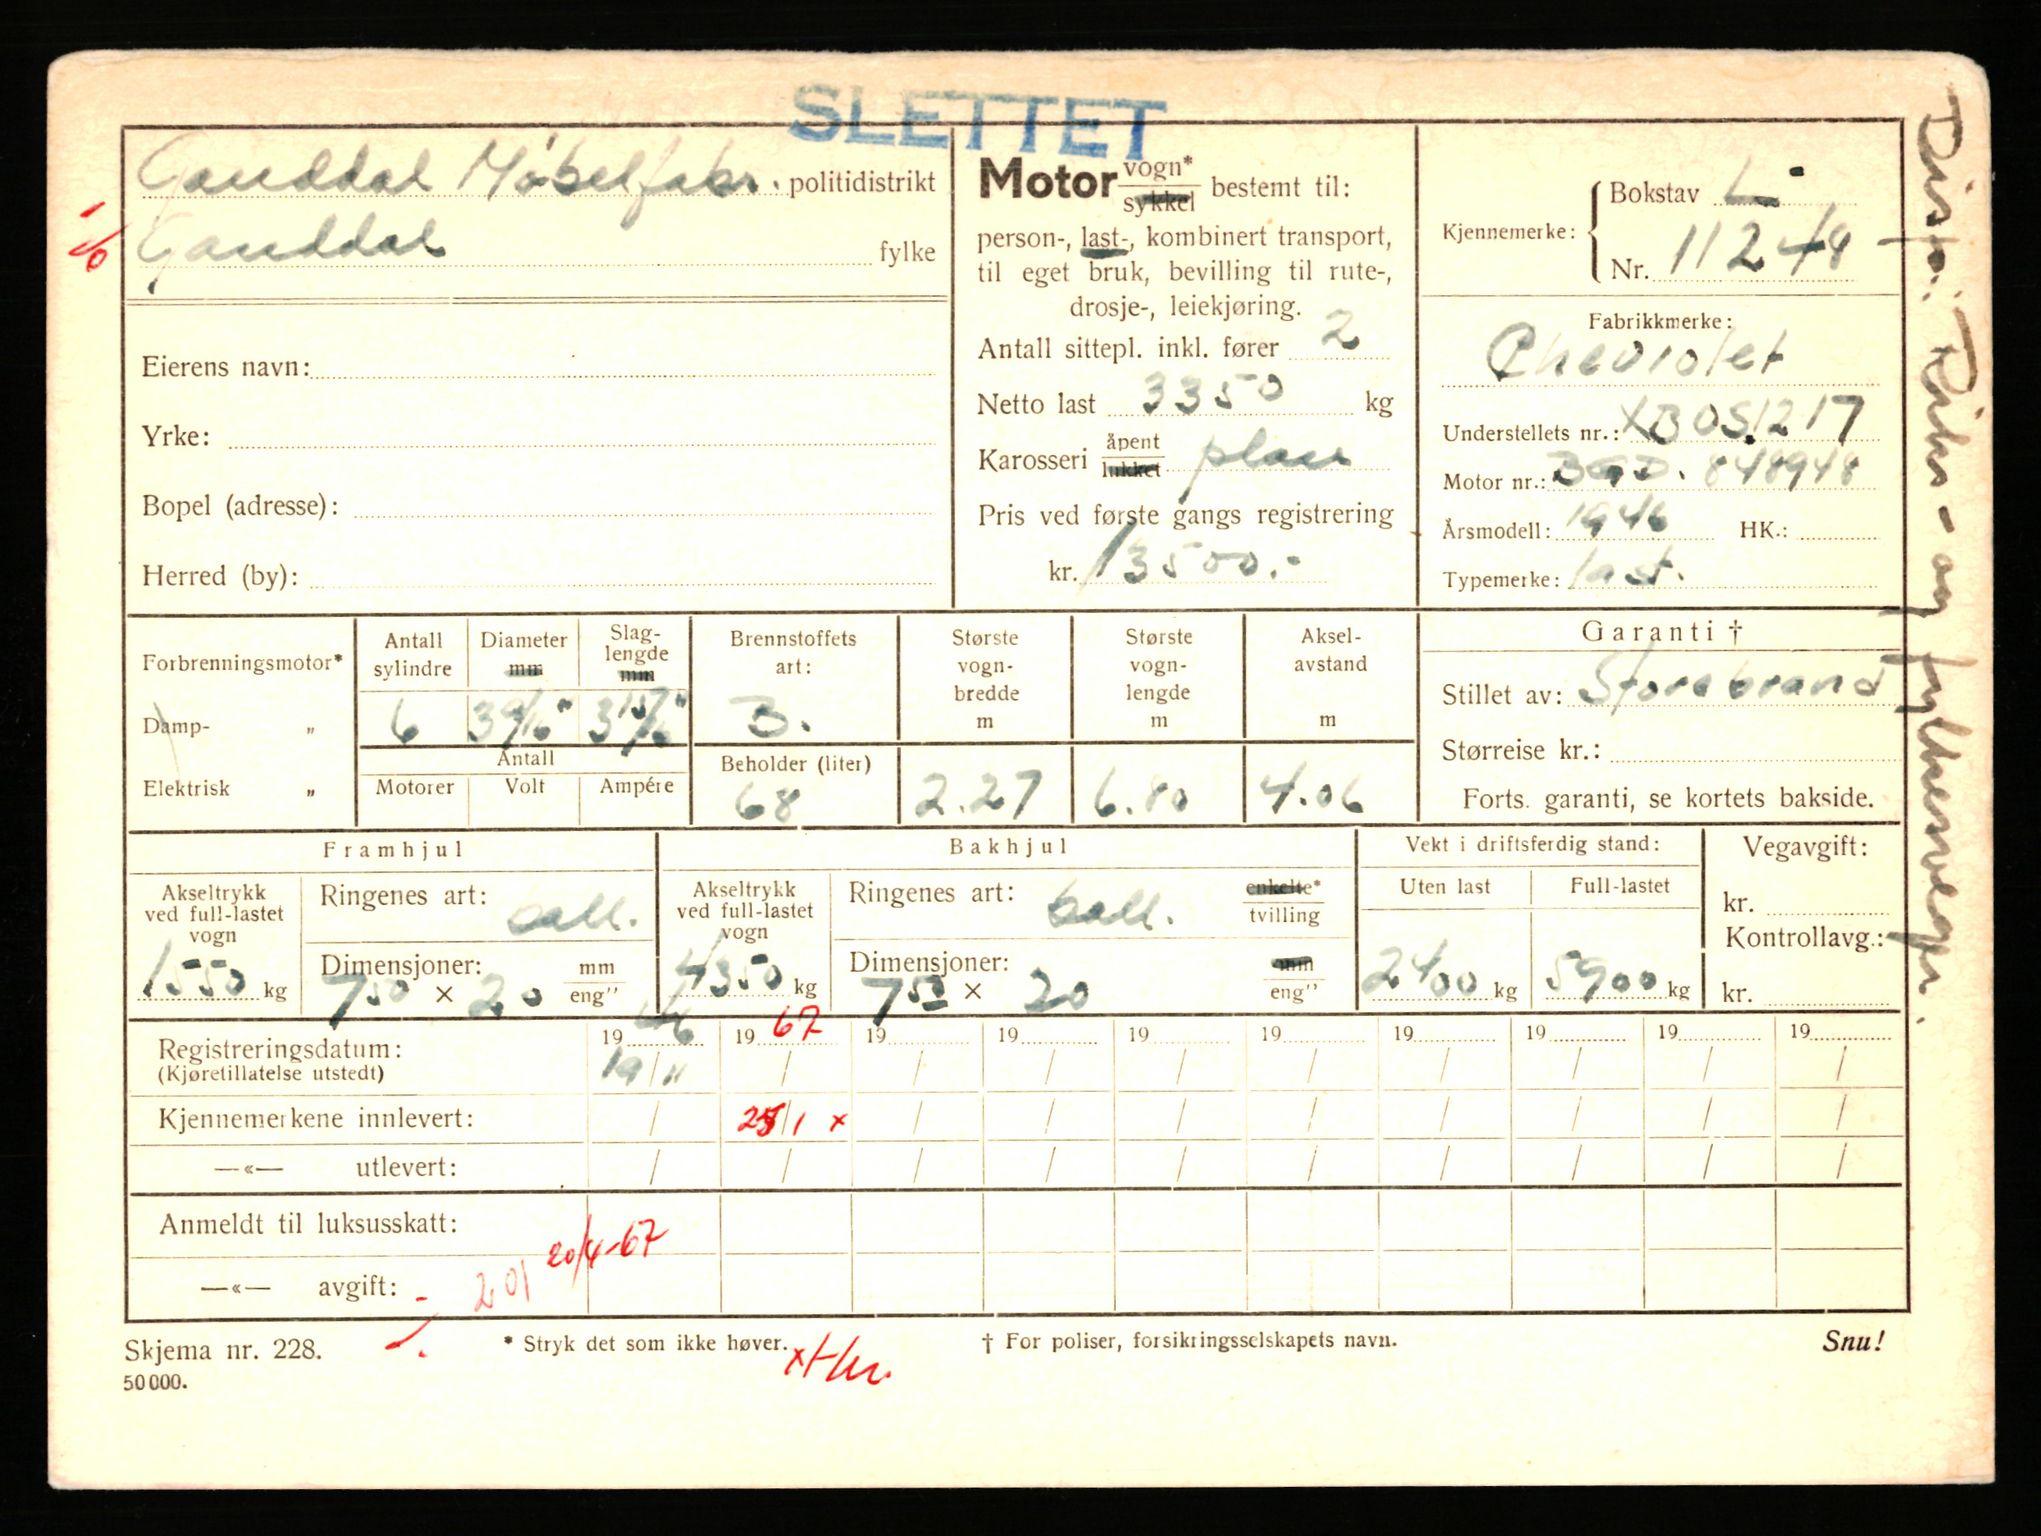 SLETTET
Ganddal Møbelfabr. politidistrikt
Ganddal fylke
Eierens navn:
Yrke:
Bopel (adresse):
Herred (by):
Motor vogn* sykkel bestemt til:
person-, last-, kombinert transport,
til eget bruk, bevilling til rute-,
drosje-, leiekjøring.
Antall sittepl. inkl. fører 2
Netto last 3350 kg
Karosseri åpent lukket plan
Pris ved første gangs registrering
kr. 13500.-
Kjennemerke: Bokstav L-
Nr. 11248
Fabrikkmerke:
Chevrolet
Understellets nr.: XBOS1217
Motor nr.: BGD. 848948
Årsmodell: 1946 HK.:
Typemerke: last.
Forbrenningsmotor*
Damp- „
Elektrisk „
Antall sylindre 6
Diameter mm 3 9/16"
Slag-lengde mm 3 15/16"
Antall
Motorer Volt Ampére
Brennstoffets art: B.
Beholder (liter) 68
Største vogn-bredde m 2.27
Største vogn-lengde m 6.80
Aksel-avstand m 4.06
Garanti †
Stillet av: Storebrand
Størreise kr.:
Forts. garanti, se kortets bakside.
Framhjul
Akseltrykk ved full-lastet vogn 1550 kg
Ringenes art: ball.
Dimensjoner: 750 × 20 mm eng"
Bakhjul
Akseltrykk ved full-lastet vogn 4350 kg
Ringenes art: ball. enkelte* tvilling
Dimensjoner: 750 × 20 mm eng"
Vekt i driftsferdig stand:
Uten last 2400 kg
Full-lastet 5900 kg
Vegavgift:
kr.
Kontrollavg.:
kr.
19 46 19 67 19 19 19 19 19 19 19 19
Registreringsdatum: 19/11 / / / / / / / / /
(Kjøretillatelse utstedt)
Kjennemerkene innlevert: / 25/1 x / / / / / / / /
—«— utlevert: / / / / / / / / / /
Anmeldt til luksusskatt:
20/4-67
—«— avgift: 201
Skjema nr. 228.
50 000.
* Stryk det som ikke høver.
† For poliser, forsikringsselskapets navn.
Snu!